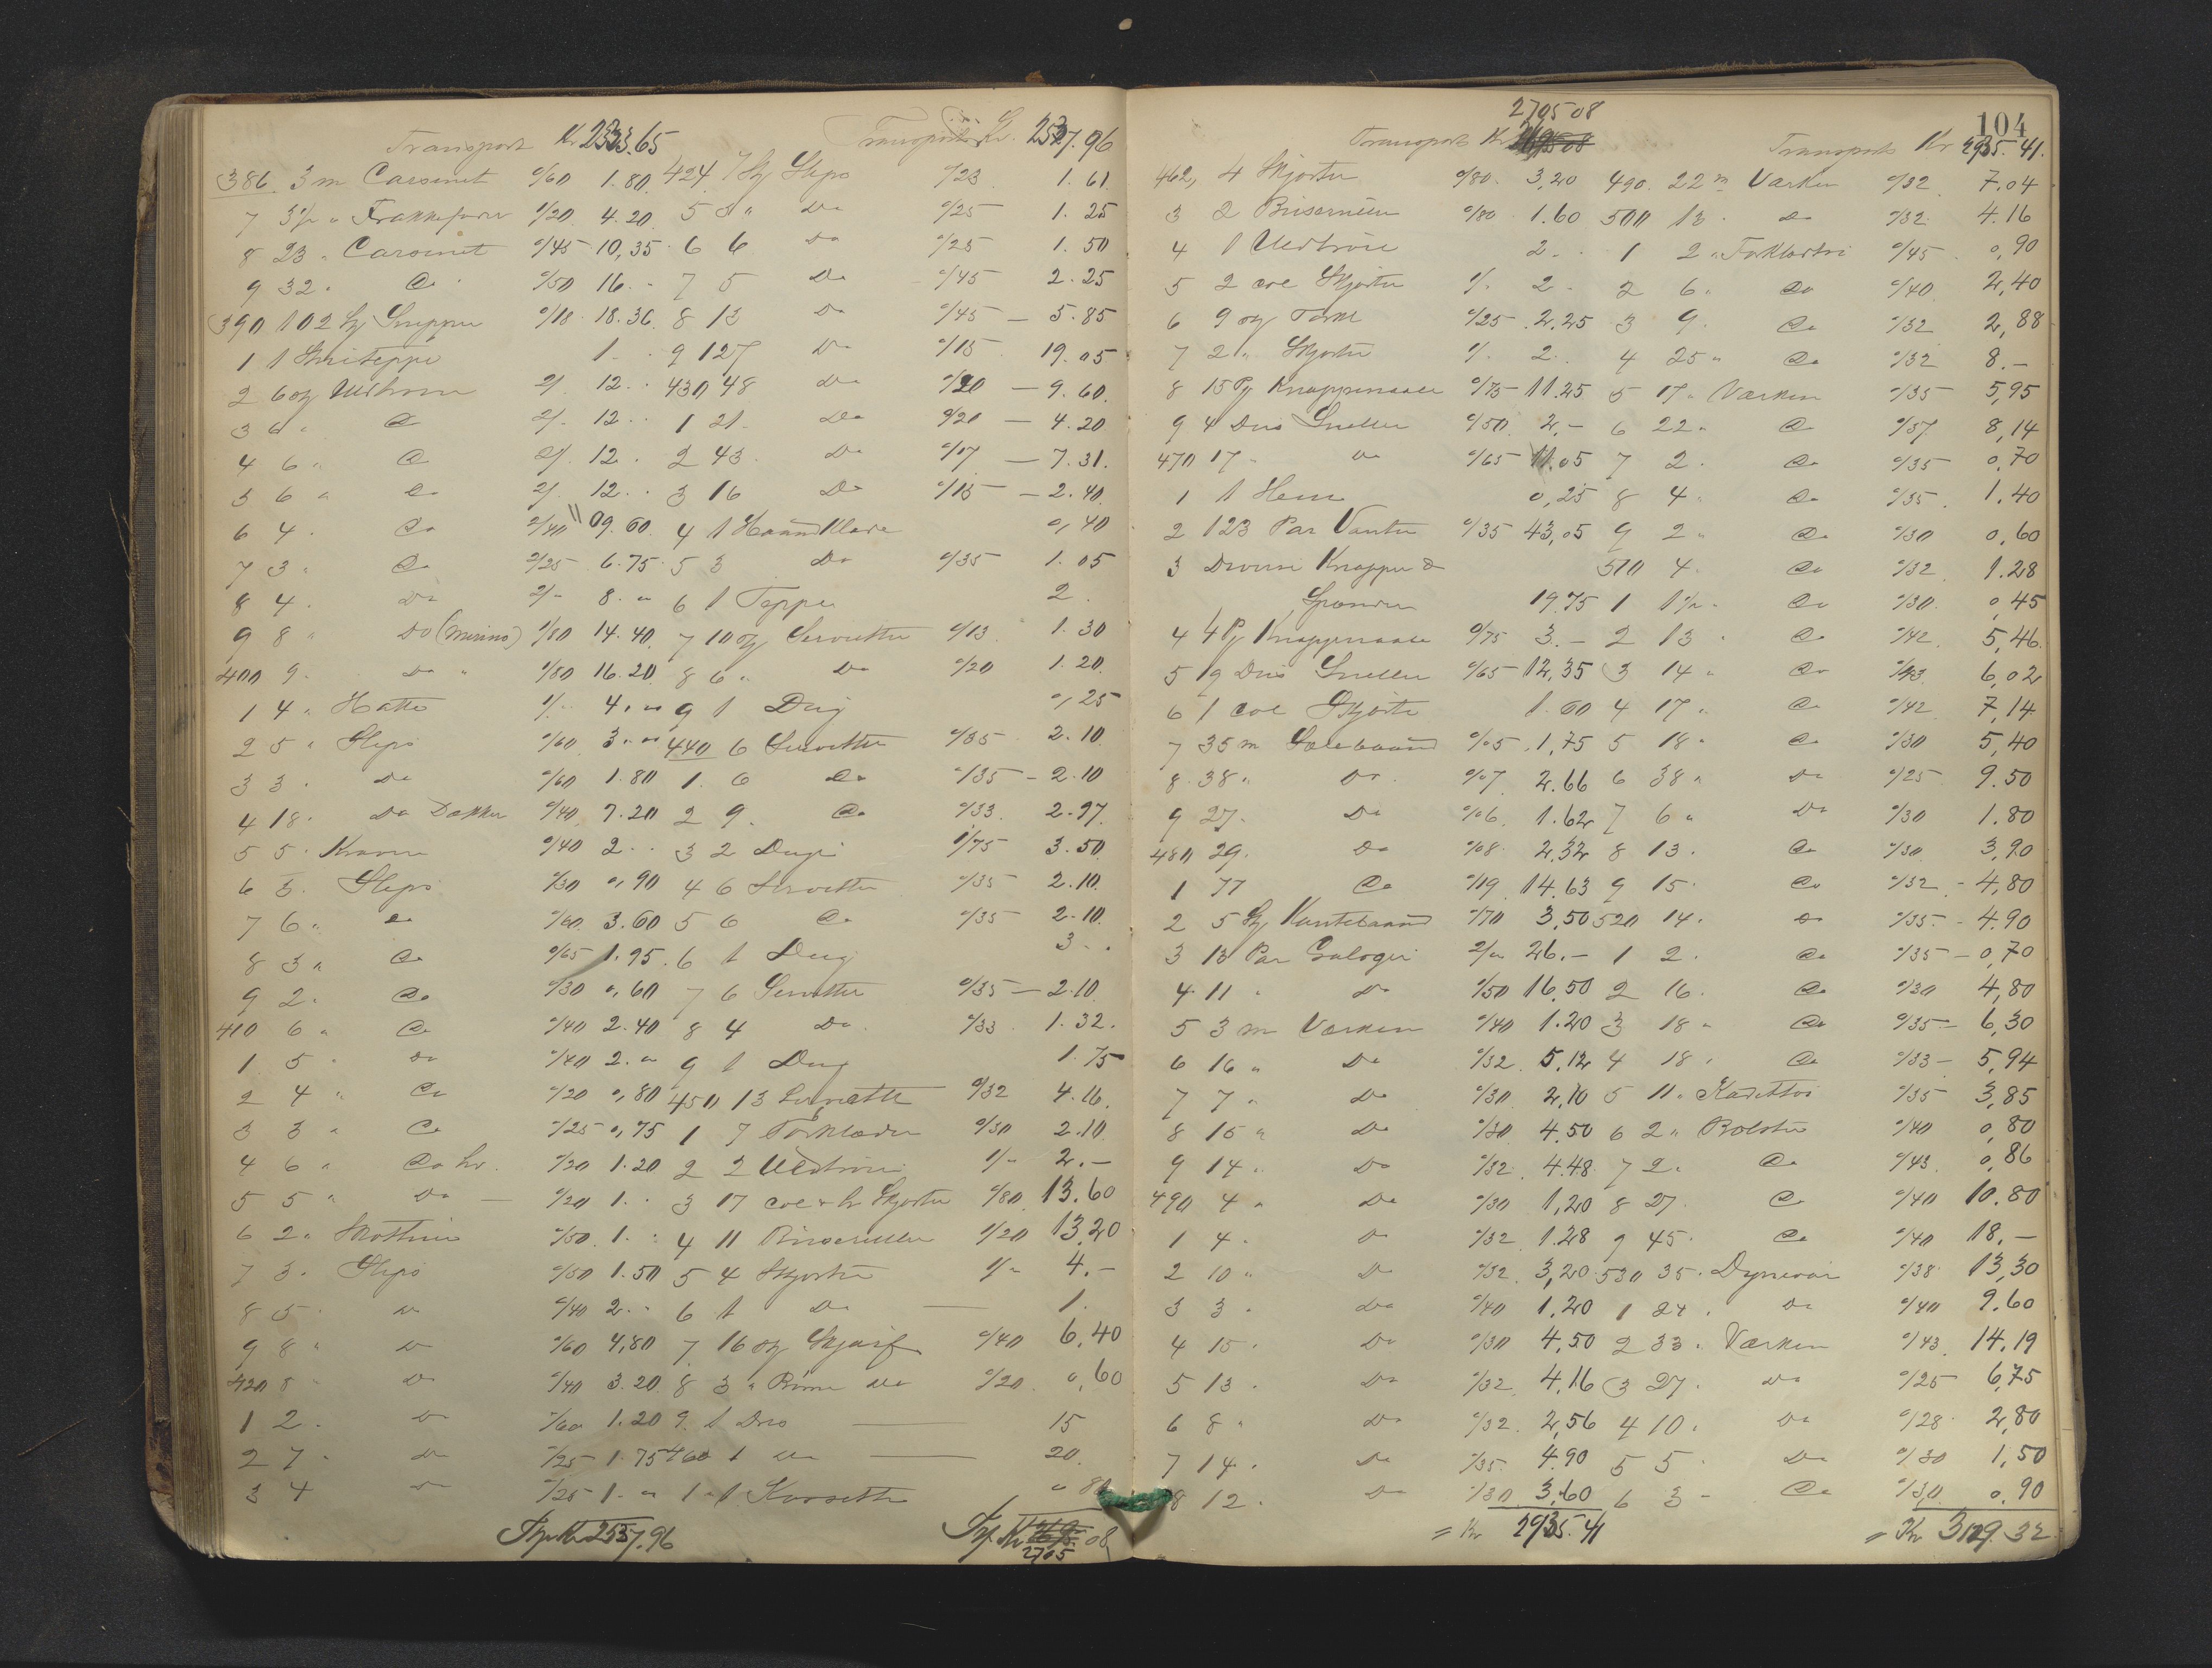 Transport Kr 2333.65
386. 3 m Carsinet 0/60 1.80
7 3½ " Frakkefoder 1/20 4.20
8 23 " Carsinet 0/45 10,35
9 32 " Do 0/50 16. -
390 102 Sz 0/18 18.36
1 1 1. -
2 6 og Uldtrøier 2/. 12. -
3 6 " Do 2/. 12. -
4 6 " Do 2/. 12. -
5 6 " Do 2/. 12. -
6 4 " Do 2/40 09.60
7 3 " Do 2/25 6.75
8 4 " Do 2/- 8. -
9 8 " Do (Merino) 1/80 14.40
400 9 " Do " 1/80 16.20
1 4 " Hatte 1/- 4. -
2 5 " Slips 0/60 3. -
3 3 " Do 0/60 1.80
4 18 " Do Dække 0/40 7.20
5 5 " Krave 0/40 2. -
6 3 " Slips 0/30 0,90
7 6 " Do 0/60 3.60
8 3 " Do 0/65 1.95
9 2 " Do 0/30 0,60
410 6 " Do 0/40 2.40
1 5 " Do 0/40 2. -
2 4 " Do 0/20 0,80
3 3 " Do 0/25 0,75
4 6 " Do hv. 0/20 1.20
5 5 " Do — 0/20 1. -
6 2 " 0/50 1. -
7 3 " Slips 0/50 1.50
8 5 " Do 0/40 2. -
9 8 " Do 0/60 4,80
420 8 " Do 0/40 3.20
1 2 " Do 0/60 1.20
2 7 " Do 0/25 1.75
3 4 " Do 0/25 1. -
Kr 2537.96
Transport Kr. 2537.96
424 7 Sz Slips 0/23 1.61
5 5 " Do 0/25 1.25
6 6 Do 0/25 1.50
7 5 Do 0/45 2.25
8 13 Do 0/45 — 5.85
9 127 Do 0/15 19.05
430 48 Do 0/20 — 9.60
1 21 Do 0/20 — 4.20
2 43 Do 0/17 — 7.31
3 16 Do 0/15 — 2.40
4 1 Haandklæde 0,40
5 3 Do 0/35 1.05
6 1 Teppe 2.
7 10 og Servietter 0/13 1.30
8 6 " Do 0/20 1.20
9 1 Dug 0,25
440 6 Servietter 0/35 2.10
1 6 Do 0/35 — 2.10
2 9 Do 0/33 2.97
3 2 Duge 1/75 3.50
4 6 Servietter 0/35 2.10
5 6 Do 0/35 2.10
6 1 Dug 3. -
7 6 Servietter 0/35 — 2.10
8 4 Do 0/33 1.32
9 1 Dug 1.75
450 13 Servietter 0/32 4.16
1 7 Tørklæder 0/30 2.10
2 2 Uldtrøier 1/- 2. -
3 17 coul & hv Skjorter 0/80 13.60
4 11 1/20 13,20
5 4 Skjorter 1/- 4. -
6 1 Do — 1.
7 16 og Skjærf 0/40 6,40
8 3 " Do 0/20 0,60
9 1 Dus — 15
460 1 Do — 20
1 1 Korsetter 0 80
Kr 2695.08
2705
2705 08
Transport Kr 2695 08
462, 4 Skjorter 0/80 3,20
3 2 0/80 1.60
4 1 Uldtrøie 2. -
5 2 coul Skjorter 1/- 2. -
6 9 og Tørkl 0/25 2.25
7 2 " Skjorter 1/- 2. -
8 15 Pj Knappenaale 0/75 11.25
9 4 Dus Sneller 0/50 2, -
470 17 " Do 0/65 11.05
1 1 0,25
2 123 Par Vanter 0/35 43,05
3 Diverse Knapper &
Spænder 19.75
4 4 Pj Knappenaale 0/75 3. -
5 19 Dus Sneller 0/65 12,35
6 1 coul Skjorte 1.60
7 35 m 0/05 1,75
8 38 " Do 0/07 2.66
9 27 " Do 0/06 1.62
480 29 " Do 0/08 2.32
1 77 Do 0/19 14.63
2 5 Sz Kantebaand 0/70 3,50
3 13 Par Galoger 2/- 26. -
4 11 " Do 1/50 16.50
5 3 m Værken 0/40 1.20
6 16 " Do 0/32 5.12
7 7 " Do 0/30 2,10
8 15 " Do 0/30 4.50
9 14 " Do 0/32 4.48
490 4 " Do 0/30 1,20
1 4 " Do 0/32 1.28
2 10 " Do 0/32 3,20
3 3 " Do 0/40 1,20
4 15 " Do 0/30 4,50
5 13 " Do 0/32 4,16
6 8 " Do 0/32 2,56
7 14 " Do 0/35 4.90
8 12 " Do 0/30 3,60
= Kr 2935.41
104
Transport Kr 2935.41.
490. 22 m Værken 0/32 7,04
500 13 " Do 0/32 4.16
1 2 " 0/45 0,90
2 6 " Do 0/40 2,40
3 9 " Do 0/32 2,88
4 25 " Do 0/32 8. -
5 17 " Værken 0/35 5,95
6 22 " Do 0/37 8,14
7 2 " Do 0/35 0,70
8 4 " Do 0/35 1.40
9 2 " Do 0/30 0,60
510 4 " Do 0/32 1.28
1 1½ " Do 0/30 0,45
2 13 " Do 0/42 5,46
3 14 " Do 0/43 6,02
4 17 " Do 0/42 7,14
5 18 " Do 0/30 5,40
6 38 " Do 0/25 9.50
7 6 " Do 0/30 1.80
8 13 " Do 0/30 3,90
9 15 " Do 0/32 - 4,80
520 14 " Do 0/35 - 4.90
1 2 " Do 0/35 - 0,70
2 16 " Do 0/30 4,80
3 18 " Do 0/35 - 6,30
4 18 " Do 0/33 - 5,94
5 11 " Kadettøi 0/35 3,85
6 2 " Bolster 0/40 0,80
7 2 " Do 0/43 0,86
8 27 " Do 0/40 10.80
9 45 " Do 0/40 18. -
530 35 " Dynevar 0/38 13,30
1 24 " Do 0/40 9.60
2 33 " Værken 0/43 14.19
3 27 " Do 0/25 6,75
4 10 " Do 0/28 2,80
5 5 " Do 0/30 1,50
6 3 " Do 0/30 0,90
= Kr 3129.32